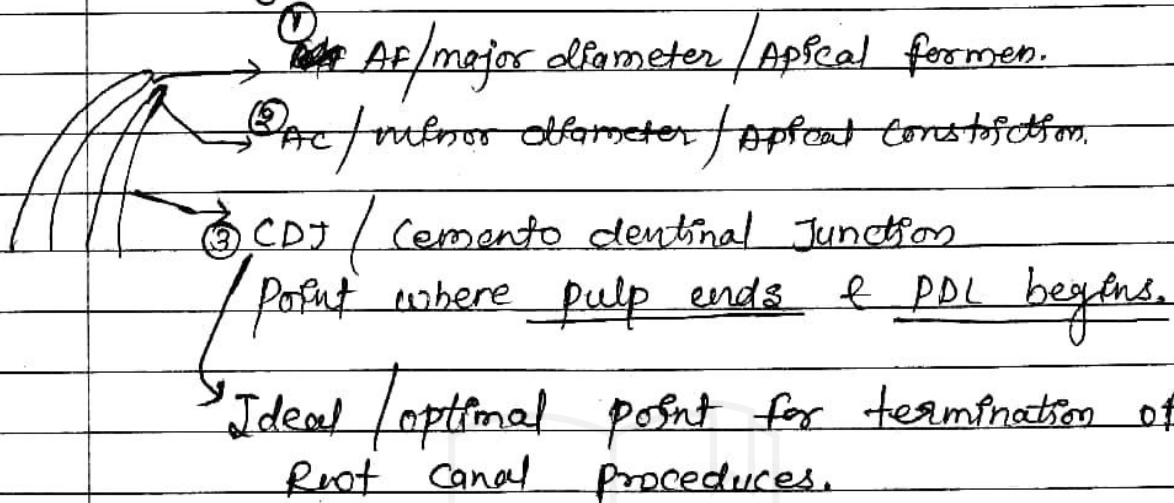 ① AF/major diameter/Apical formen.
② AC/minor diameter/Apical Constriction.
③ CDJ/Cemento dentinal Junction
Point where pulp ends & PDL begins.
Ideal/optimal point for termination of
Root Canal Proceduces.